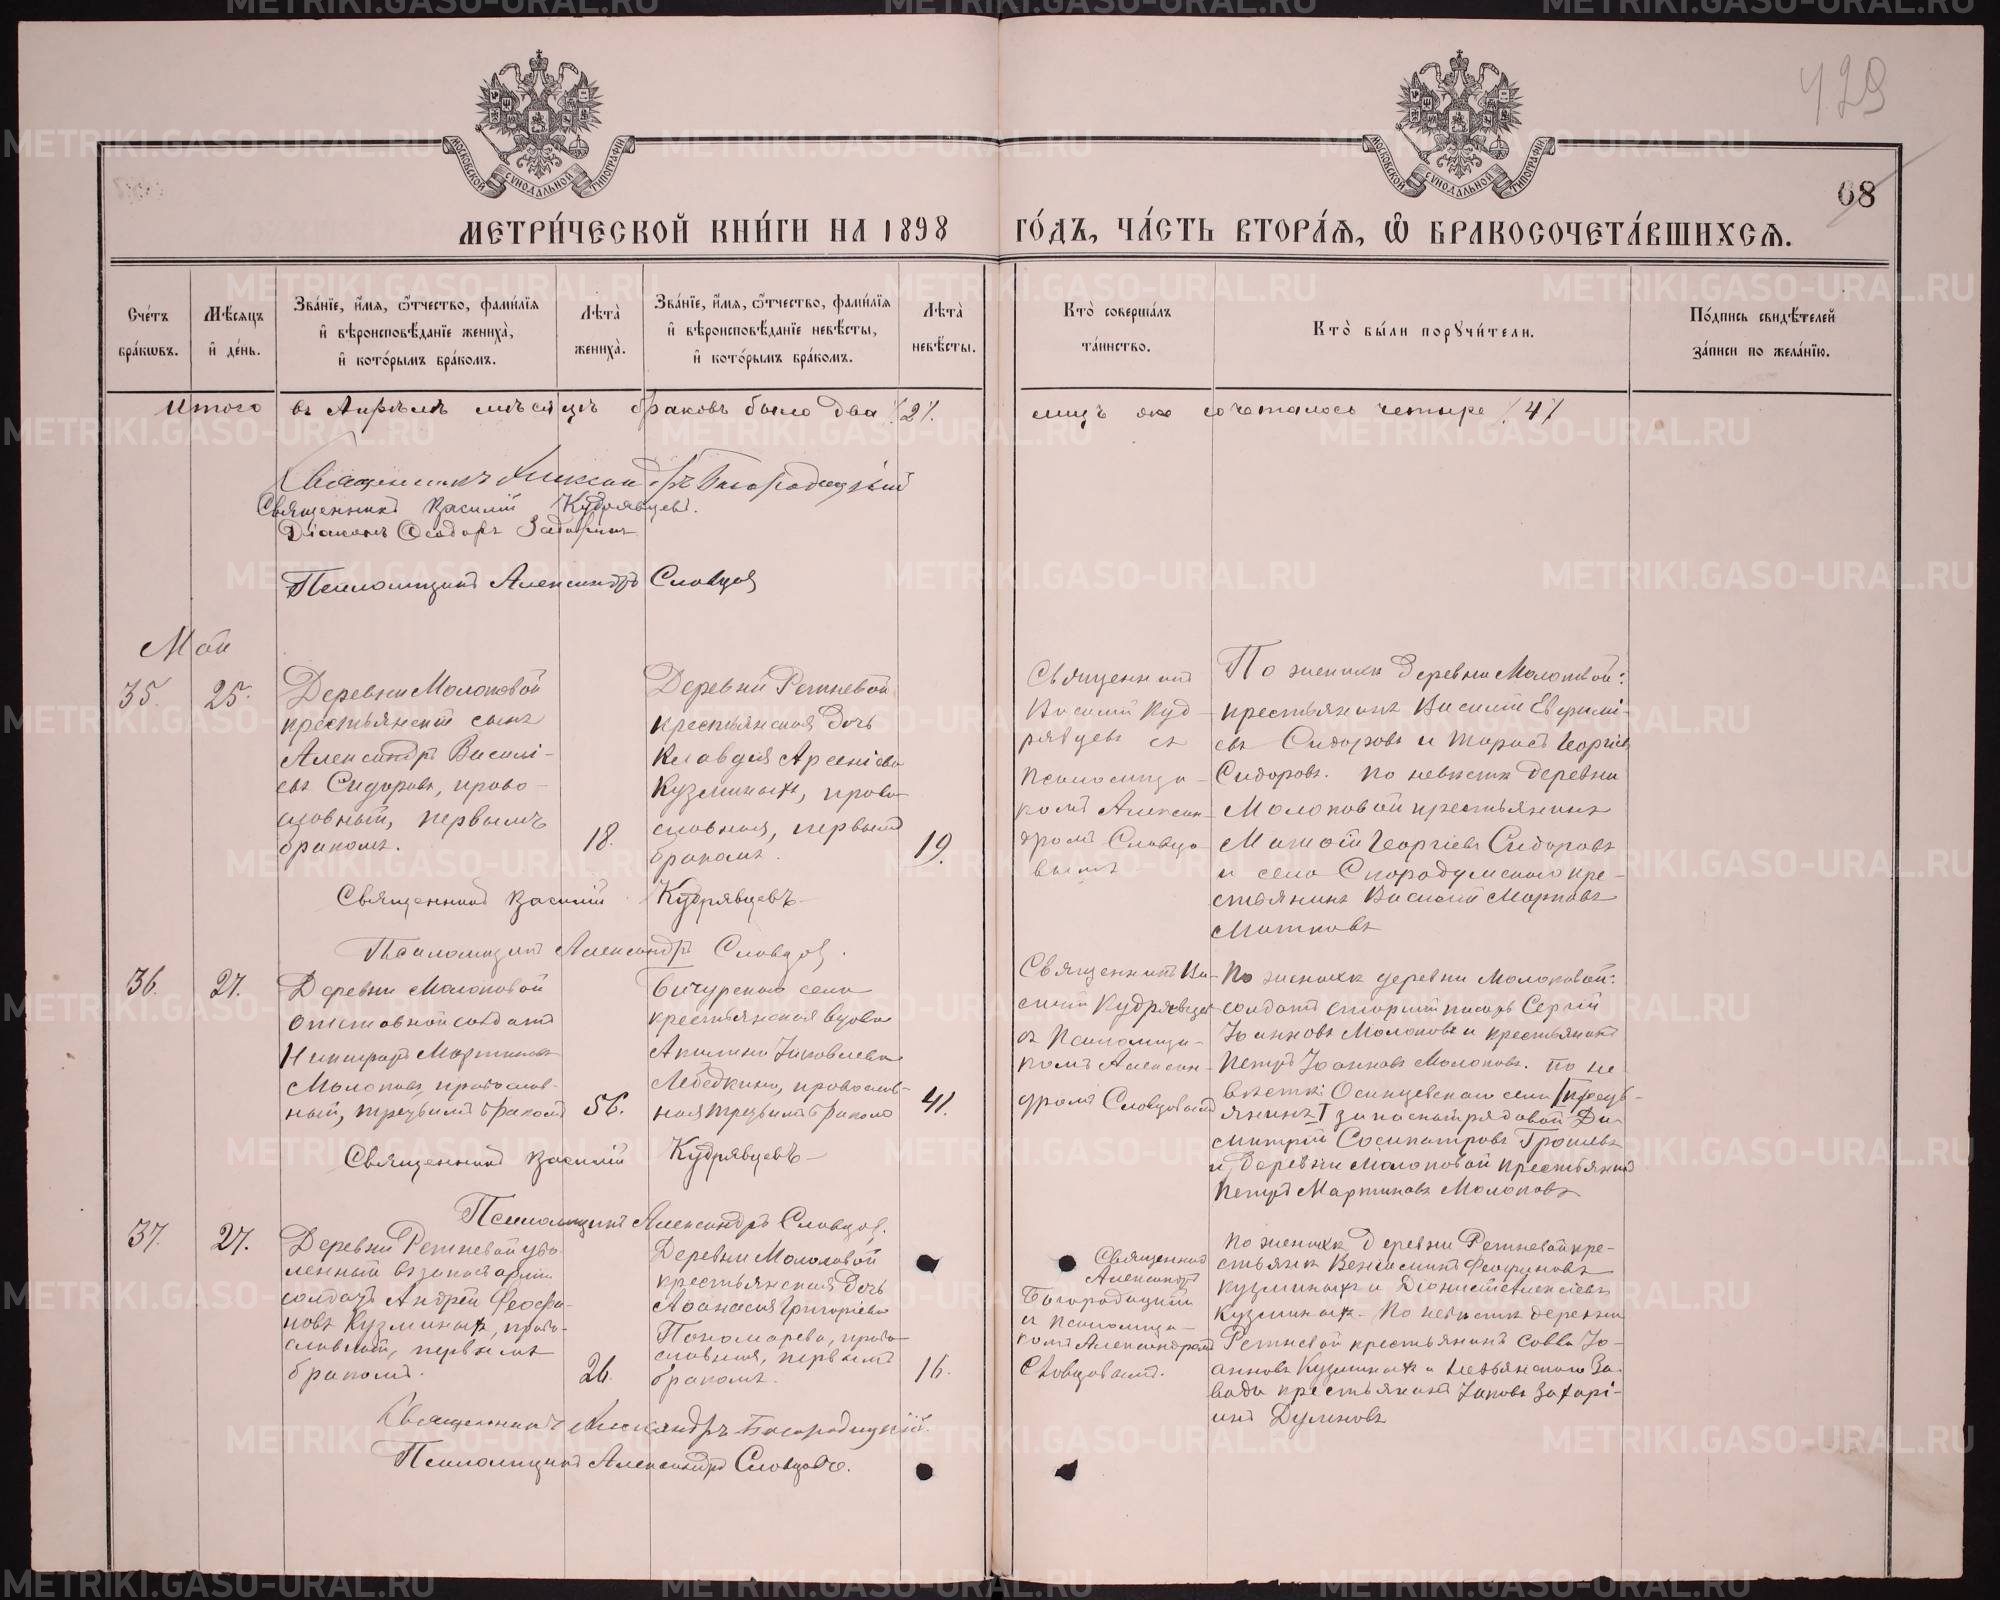 МОСКОВСКОЙ СѴНОДАЛЬНОЙ ТИПОГРАФІИ
МОСКОВСКОЙ СѴНОДАЛЬНОЙ ТИПОГРАФІИ
429
68
МЕТРИ́ЧЕСКОЙ КНИ́ГИ НА 1898 ГО́ДЪ, ЧА́СТЬ ВТОРА́Я, Ѡ БРАКОСОЧЕТА́ВШИХСЯ.
Сче́тъ бра́кѡвъ.
Мѣ́сяцъ и҆ де́нь.
Зва́нїе, и҆́мя, ѻ҆́тчество, фами́лїя и҆ вѣроисповѣ́данїе жениха̀, и҆ кото́рымъ бра́комъ.
Лѣта̀ жениха̀.
Зва́нїе, и҆́мя, ѻ҆́тчество, фами́лїя и҆ вѣроисповѣ́данїе невѣ́сты, и҆ кото́рымъ бра́комъ.
Лѣта̀ невѣ́сты.
Кто̀ соверша́лъ та́инство.
Кто̀ бы́ли порꙋчи́тели.
По́дпись свидѣ́телей за́писи по жела́нїю.
Итого въ Апрѣлѣ мѣсяцѣ браковъ было два /2/. лицъ сочеталось четыре /4/
Священникъ Александръ Богородицкій
Священникъ Василій Кудрявцевъ.
Діаконъ Ѳеодоръ
Псаломщикъ Александръ Словцовъ
Май
35.
25.
Деревни Молоковой
крестьянскій сынъ
Александръ Василі-
евъ Сидоровъ, право-
славный, первымъ
бракомъ.
18.
Деревни Ретневой
крестьянская дочь
Клавдія Арсеніева
Кузминыхъ, право-
славная, первымъ
бракомъ.
19.
Священникъ
Василій Куд-
рявцевъ съ
псаломщи-
комъ Алексан-
дромъ Словцо-
вымъ
По женихѣ деревни Молоковой:
крестьянинъ Василій Евфимі-
евъ Сидоровъ и Тарасъ Георгіевъ
Сидоровъ. по невѣстѣ деревни
Молоковой крестьянинъ
Георгіевъ Сидоровъ
и села Скородумскаго кре-
стьянинъ Василій Марковъ
Священникъ Василій Кудрявцевъ
Псаломщикъ Александръ Словцовъ.
36.
27.
Деревни Молоковой
отставной солдатъ
Мартиновъ
Молоковъ, православ-
ный, третьимъ бракомъ
56.
Бичурскаго села
крестьянская вдова
Акилина Іаковлева
Лебедкина, православ-
ная третьимъ бракомъ
41.
Священникъ Ва-
силій Кудрявцевъ
съ Псаломщи-
комъ Алексан-
дромъ Словцовымъ
По женихѣ деревни Молоковой:
солдатъ старшій писарь Сергій
Іоанновъ Молоковъ и крестьянинъ
Петръ Іоанновъ Молоковъ. по не-
вѣстѣ: Осинцевскаго села
запасный рядовой Ди-
митрій Сосипатровъ Грошевъ
и деревни Молоковой крестьянинъ
Петръ Мартиновъ Молоковъ
Священникъ Василій Кудрявцевъ
Псаломщикъ Александръ Словцовъ.
37.
27.
Деревни Ретневой уво-
ленный въ запасъ арміи
солдатъ Андрей Феофи-
новъ Кузминыхъ, право-
славный, первымъ
бракомъ.
26.
Деревни Молоковой
крестьянская дочь
Аѳанасія Григоріева
Пономарева, право-
славная, первымъ
бракомъ.
16.
Священникъ
Александръ
Богородицкій
съ псаломщи-
комъ Александромъ
Словцовымъ.
По женихѣ деревни Ретневой кре-
стьяне Веніаминъ Феофиновъ
Кузминыхъ и Діонисій Алексіевъ
Кузминыхъ. По невѣстѣ деревни
Ретневой крестьянинъ Савва Іо-
анновъ Кузминыхъ и Невьянскаго За-
вода крестьянинъ Іаковъ Захарі-
инъ
Священникъ Александръ Богородицкій.
Псаломщикъ Александръ Словцовъ.
METRIKI.GASO-URAL.RU